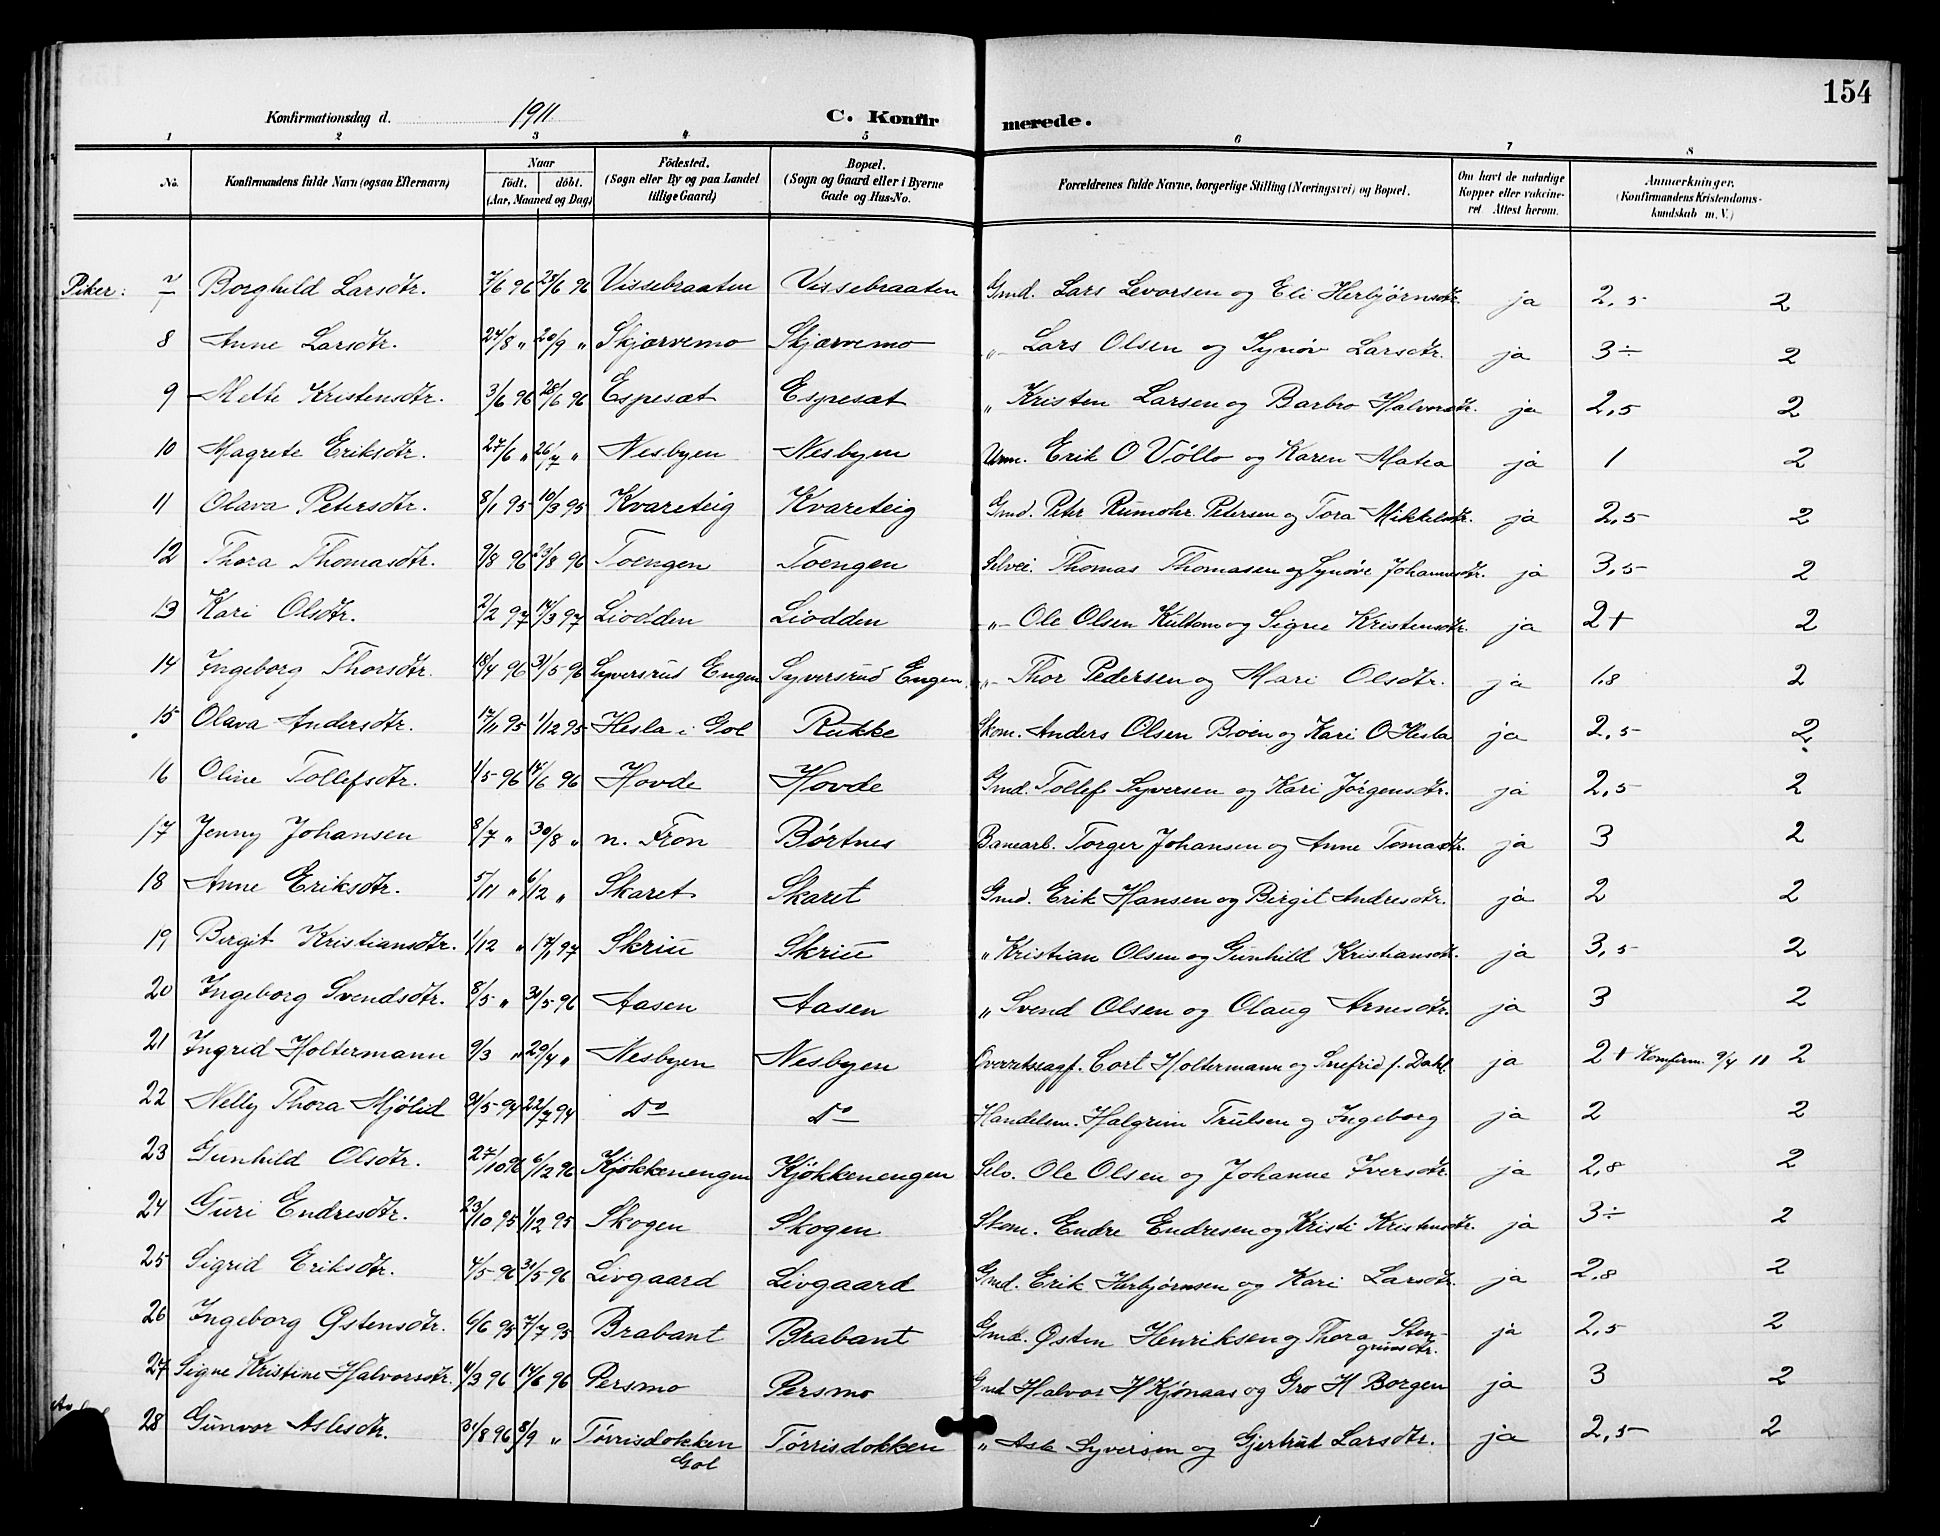 154
Konfirmationsdag d. 1911 C. Konfirmerede.
1 2 3 4 5 6 7 8
No. Konfirmandens fulde Navn (ogsaa Efternavn) Naar født. døbt. (Aar, Maaned og Dag) Födested. (Sogn eller By og paa Landet tillige Gaard) Bopæl. (Sogn og Gaard eller i Byerne Gade og Hus-No. Forældrenes fulde Navne, borgerlige Stilling (Næringsvei) og Bopæl. Om havt de naturlige Kopper eller vakcineret Attest herom. Anmærkninger. (Konfirmandens Kristendomskundskab m. V.)
Piker: 7 Borghild Larsdtr. 7/6 96 25/6 96 Vissebraaten Vissebraaten Gmd. Lars Levorsen og Eli Herbjørnsdtr. ja 2,5 2
8 Anne Larsdtr. 24/8 " 20/9 " Skjærvemo Skjærvemo -"- Lars Olsen og Synøv Larsdtr. ja 3÷ 2
9 Mette Kristensdtr. 3/6 96 28/6 96 Espesæt Espesæt " Kristen Larsen og Barbro Halvorsdtr. ja 2,5 2
10 Magrete Eriksdtr. 27/6 " 26/7 " Nesbyen Nesbyen Urm. Erik O Vøllo og Karen Matea ja 1 2
11 Olava Petersdtr. 8/1 95 10/3 95 Kvareteig Kvareteig Gmd. Peter Rumohr Petersen og Tora Mikkelsdtr. ja 2,5 2
12 Thora Thomasdtr. 9/8 96 23/8 96 Toengen Toengen Selvei. Thomas Thomasen og Synøve Johannesdtr. ja 3,5 2
13 Kari Olsdtr. 2/2 97 14/3 97 Liodden Liodden -"- Ole Olsen Kultom og Signe Kristensdtr. ja 2+ 2
14 Ingeborg Thorsdtr. 18/4 96 31/5 96 Syversrud Engen Syversrud Engen -"- Thor Pedersen og Mari Olsdtr. ja 1,8 2
15 Olava Andersdtr. 17/11 95 1/12 95 Hesla i Gol Rukke Skom. Anders Olsen Bøen og Kari O Hesla ja 2,5 2
16 Oline Tollefsdtr. 1/5 96 14/6 96 Hovde Hovde Gmd. Tollef Syversen og Kari Jørgensdtr. ja 2,5 2
17 Jenny Johansen 8/7 " 30/8 " n. Fron Børtnes Banearb. Torger Johansen og Anne Tomasdtr. ja 3 2
18 Anne Eriksdtr. 5/11 " 6/12 " Skaret Skaret Gmd. Erik Hansen og Birgit Andresdtr. ja 2 2
19 Birgit Kristiansdtr. 1/12 " 17/1 97 Skriu Skriu " Kristian Olsen og Gunhild Kristiansdtr. ja 3,5 2
20 Ingeborg Svendsdtr. 8/5 " 31/5 96 Aasen Aasen " Svend Olsen og Olaug Arnesdtr. ja 3 2
21 Ingrid Holtermann 9/3 " 29/4 " Nesbyen Nesbyen Overretssagf. Cort Holtermann og Snefrid f. Dahl. ja 2+ Komfirm. 9/4 11 2
22 Nelly Thora Mjølid 21/5 94 22/7 94 Do Do Handelsm. Halgrim Trulsen og Ingeborg ja 2 2
23 Gunhild Olsdtr. 27/10 96 6/12 96 Kjøkkenengen Kjøkkenengen Selv. Ole Olsen og Johanne Iversdtr. ja 2,8 2
24 Guri Endresdtr. 23/10 95 1/12 95 Skogen Skogen Skom. Endre Endresen og Kristi Kristensdtr. ja 3÷ 2
25 Sigrid Eriksdtr. 4/5 96 31/5 96 Livgaard Livgaard Gmd. Erik Herbjørnsen og Kari Larsdtr. ja 2,8 2
26 Ingeborg Østensdtr. 6/6 95 7/7 95 Brabant Brabant Gmd. Østen Henriksen og Thora Stengrimsdtr. ja 2,5 2
27 Signe Kristine Halvorsdtr. 4/3 96 14/6 96 Persmo Persmo Gmd Halvor H Kjønaas og Gro H Borgen ja 3 2
28 Gunvor Aslesdtr. 31/8 96 8/9 " Tørrisdokken Gol Tørrisdokken " Asle Syversen og Gjertrud Larsdtr. ja 2,5 2